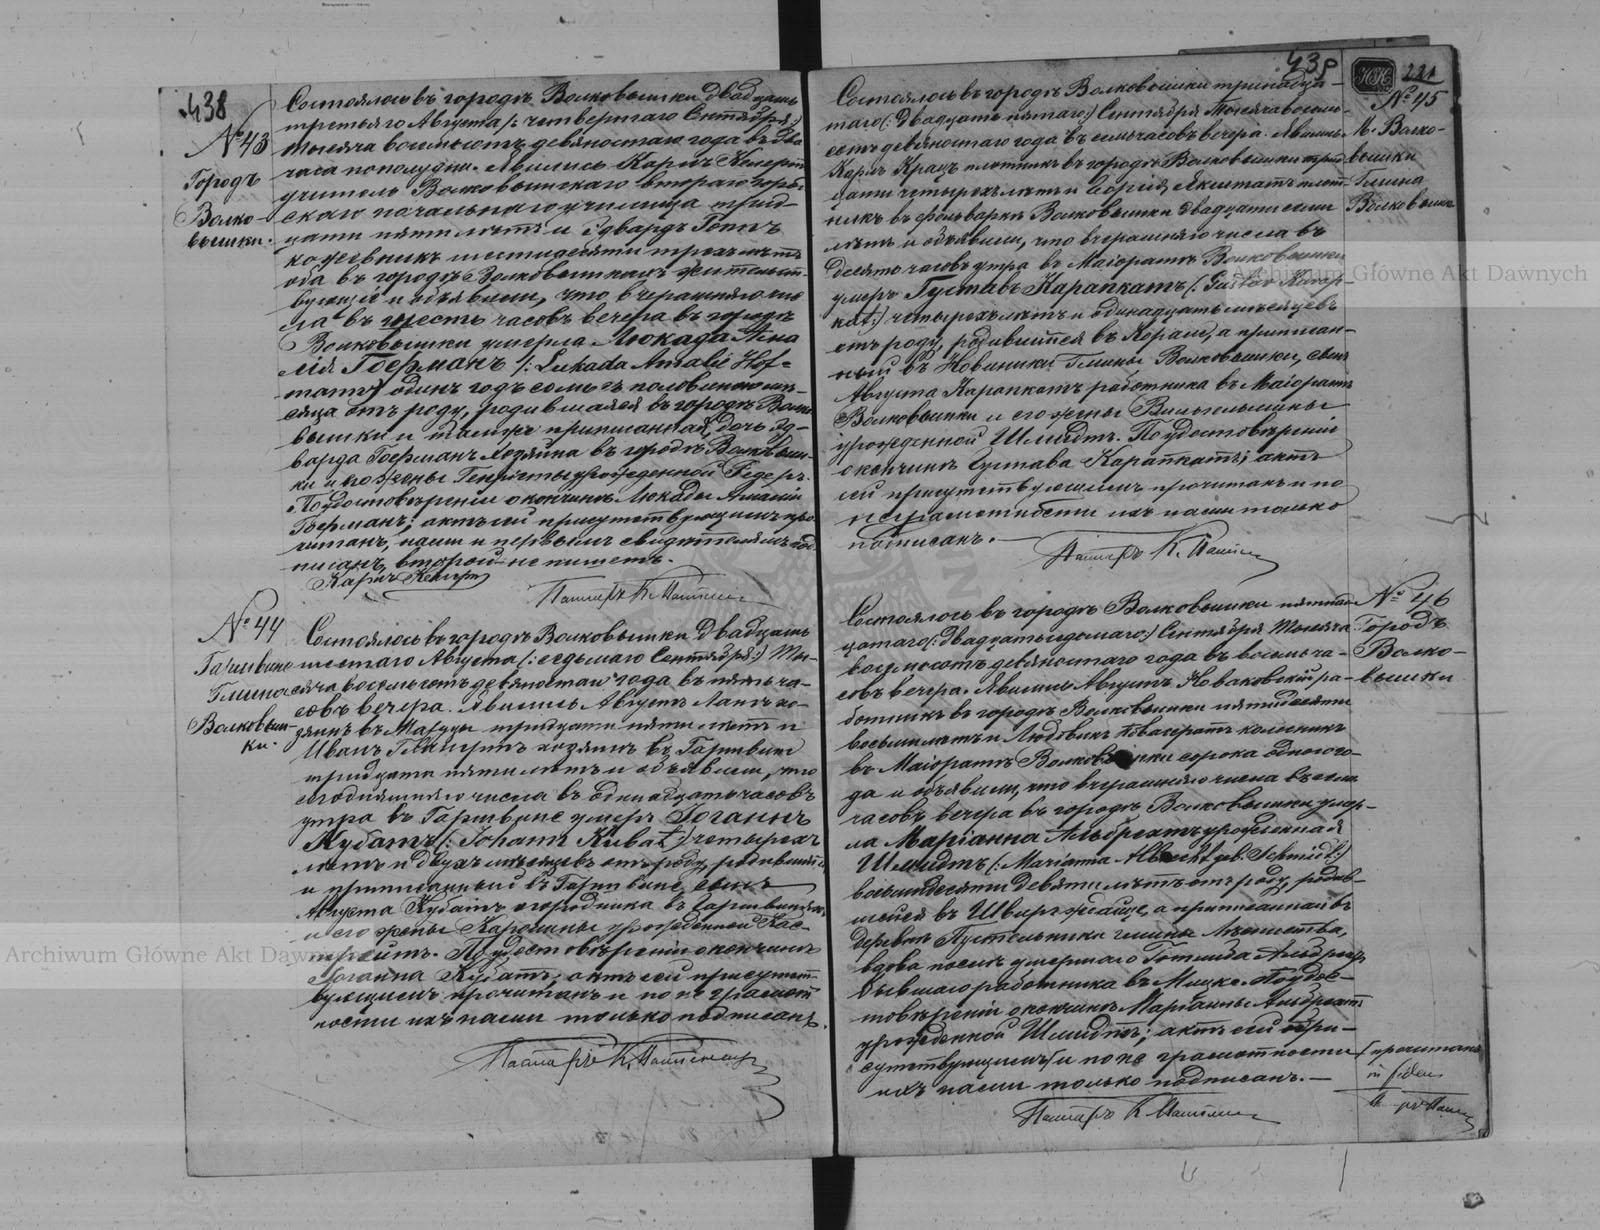 438
№ 43
Городъ
Волко-
вышки.
Состоялось въ городѣ Волковышки двадцать
третьяго Августа /: четвертаго Сентября :/
тысяча восемьсотъ девяностаго года въ два
часа пополудни. Явились Карлъ
учитель Волковышскаго втораго город-
скаго начальнаго училища трид-
цати пяти лѣтъ и Эдвардъ Готъ
шестидесяти трехъ лѣтъ
оба въ городѣ Волковышкахъ жительст-
вующіе и объявили, что вчерашняго чис
ла въ шесть часовъ вечера въ городѣ
Волковышки умерла Люкада Ама
лія Гофманъ /: Lukada Amalie Hof-
mann одинъ годъ семь съ половиною мѣ-
сяца отъ роду, родившаяся въ городѣ Волко
вышки и тамже приписанная, дочь Эд-
варда Гофманъ хозяина въ городѣ Волковыш-
ки и его жены Генріеты урожденной Федеръ.
По удостовѣреніи о кончинѣ Люкады Амаліи
Гофманъ; актъ сей присутствующимъ про
читанъ, нами и первымъ свидѣтелемъ под
писанъ, второй не пишетъ.
Карлъ
Пасторъ К.
№ 44
Гмина
Волковыш-
ки.
Состоялось въ городѣ Волковышки двадцать
шестаго Августа (: седьмаго Сентября :) Ты-
сяча восемьсотъ девяностаго года въ пять ча-
совъ вечера. Явились Августъ Лантъ хо-
зяинъ въ тридцати пяти лѣтъ и
Иванъ хозяинъ въ
тридцати пяти лѣтъ и объявили, что
сегодняшняго числа въ одинадцать часовъ
утра въ умеръ Іоганъ
Кубатъ (: Johann Kubat :) четырехъ
лѣтъ и двухъ мѣсяцевъ отъ роду, родившійся
и приписанный въ сынъ
Августа Кубатъ огородника въ
и его жены Каролины урожденной Кас-
По удостовѣреніи о кончинѣ
Іогана Кубатъ; актъ сей присутст-
вующимъ прочитанъ и по не грамот
ности ихъ нами только подписанъ.
Пасторъ К.
439
221
№ 45
М. Волко-
вышки
Гмина
Волковышки
Состоялось въ городѣ Волковышки тринадца-
таго (: двадцать пятаго :) Сентября Тысяча восемь-
сотъ девяностаго года въ семь часовъ вечера. Явились
Карлъ Крацъ плотникъ въ городѣ Волковышки трид
цати четырехъ лѣтъ и плот
никъ въ фольваркѣ Волковышки двадцати семи
лѣтъ и объявили, что вчерашняго числа въ
десять часовъ утра въ Маіоратѣ Волковышки
умеръ Густавъ Карапкатъ (: Gustav Karap-
kat :) четырехъ лѣтъ и одинадцать мѣсяцевъ
отъ роду, родившійся въ а приписан-
ный въ Новиники Гмины Волковышки, сынъ
Августа Карапкатъ работника въ Маіоратѣ
Волковышки и его жены Вильгельмины
урожденной Шмидтъ. По удостовѣреніи
о кончинѣ Густава Карапкатъ; актъ
сей присутствующимъ прочитанъ и по
неграмотности ихъ нами только
подписанъ.
Пасторъ К.
№ 46
Городъ
Волко-
вышки
Состоялось въ городѣ Волковышки пятнад
цатаго (: двадцать седьмаго :) Сентября Тысяча
восемьсотъ девяностаго года въ восемь ча-
совъ вечера. Явились Августъ Новаковскій ра-
ботникъ въ городѣ Волковышки пятидесяти
восьми лѣтъ и Людовикъ колесникъ
въ Маіоратѣ Волковышки сорока одного го-
да и объявили, что вчерашняго числа въ семь
часовъ вечера въ городѣ Волковышки умер-
ла Маріанна Альбрехтъ урожденная
Шмидтъ (: Marianna Albrecht geb. Schmidt :)
восьмидесяти девяти лѣтъ отъ роду, родив-
шаяся въ а приписанная въ
деревнѣ Пустельники гмины
вдова послѣ умершаго Готлиба Альбрехт
бывшаго работника въ По удос-
товѣреніи о кончинѣ Маріанны Альбрехт
урожденной Шмидтъ; актъ сей при-
сутствующимъ и по не грамотности
ихъ нами только подписанъ.
прочитанъ
in fidem
Пасторъ К.
Archiwum Główne Akt Dawnych
Archiwum Główne Akt Dawnych